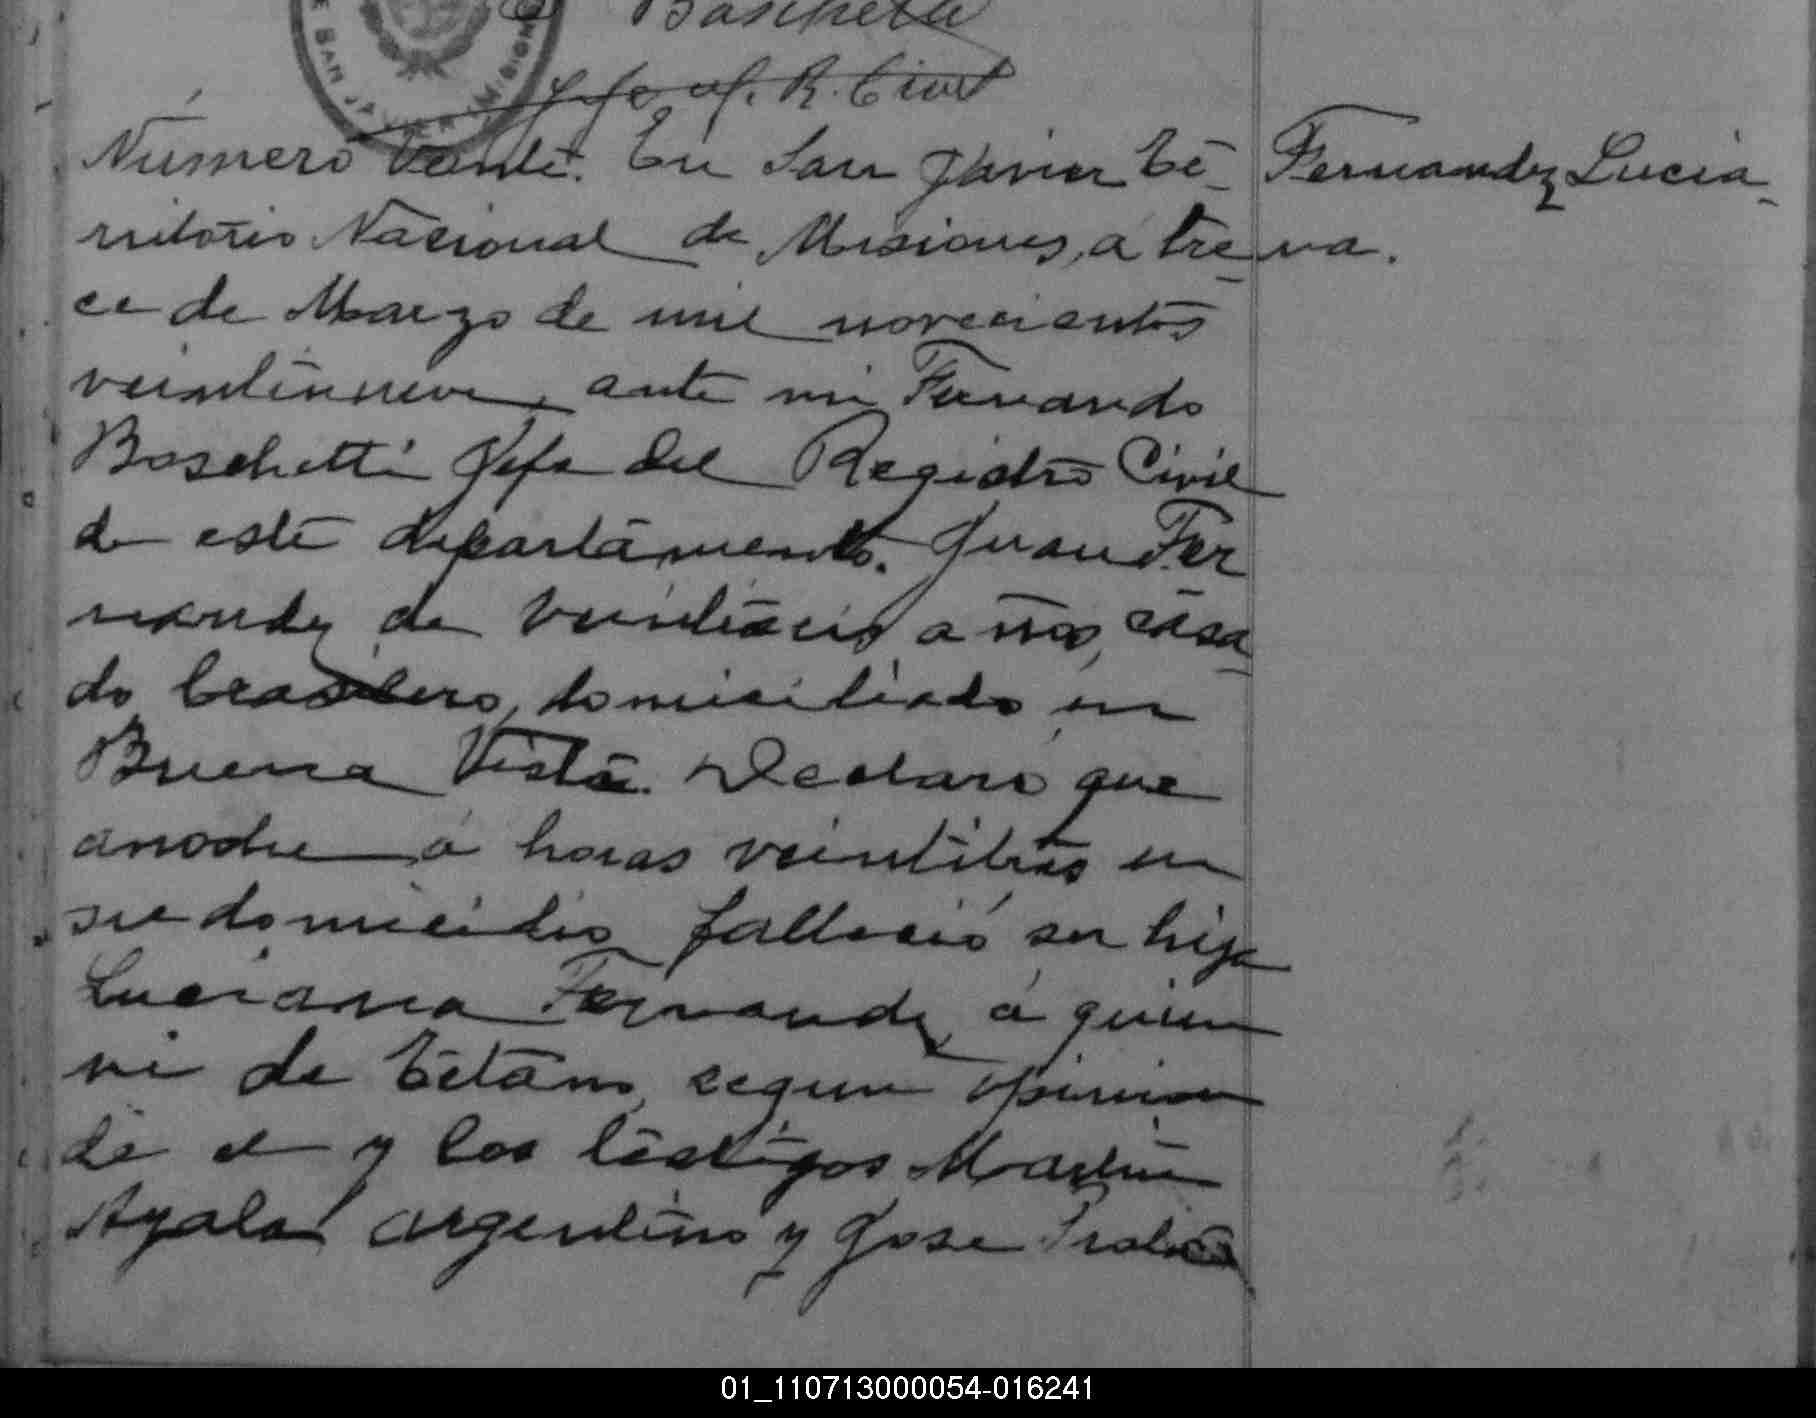 Boschetti
Jefe of. R. Civil
DE SAN JAVIER MISIONES
Número Veinte. En San Javier Te-
rritorio Nacional de Misiones, a tre-
ce de Marzo de mil novecientos
veintinueve, ante mi Fernando
Boschetti Jefe del Registro Civil
de este departamento. Juan Fer
nandez de veintiseis años, casa-
do brasilero, domiciliado en
Buena Vista. Declaró que
anoche á horas veintitres en
su domicilio falleció su hija
Luciana Fernandez á quien
vi de tétano, segun opinion
de el y los testigos Martin
Ayala argentino y Jose
Fernandez Lucia-
na.
01_110713000054-016241